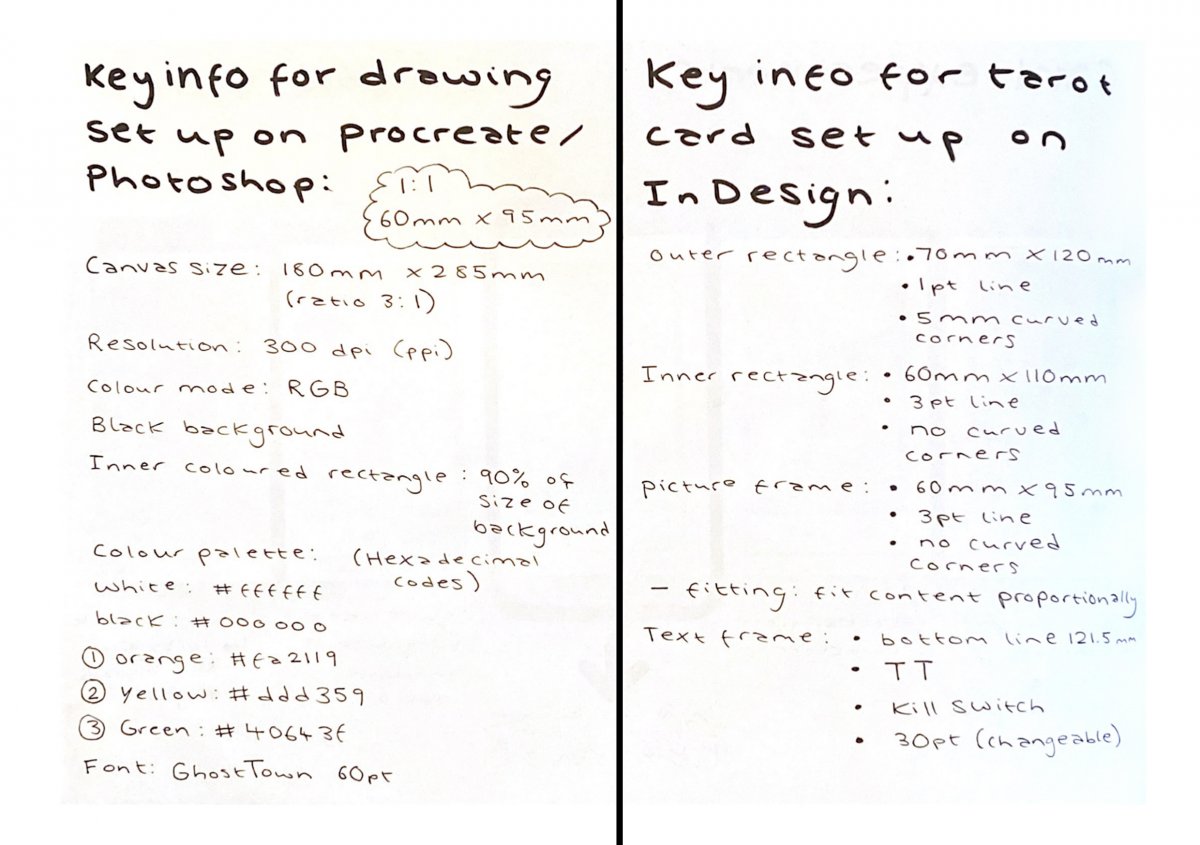 Key info for drawing
set up on Procreate/
Photoshop:
1:1
60mm x 95mm
Canvas size: 180mm x 285mm
(ratio 3:1)
Resolution: 300 dpi (ppi)
Colour mode: RGB
Black background
Inner coloured rectangle: 90% of
size of
background
Colour palette: (Hexadecimal
codes)
white: #ffffff
black: #000000
① orange: #fa2119
② Yellow: #ddd359
③ Green: #40643f
Font: GhostTown 60pt
Key info for tarot
card set up on
InDesign:
Outer rectangle: • 70mm x 120mm
• 1pt line
• 5mm curved
corners
Inner rectangle: • 60mm x 110mm
• 3pt line
• no curved
corners
picture frame: • 60mm x 95mm
• 3pt line
• no curved
corners
– fitting: fit content proportionally
Text frame: • bottom line 121.5mm
• TT
• Kill Switch
• 30pt (changeable)